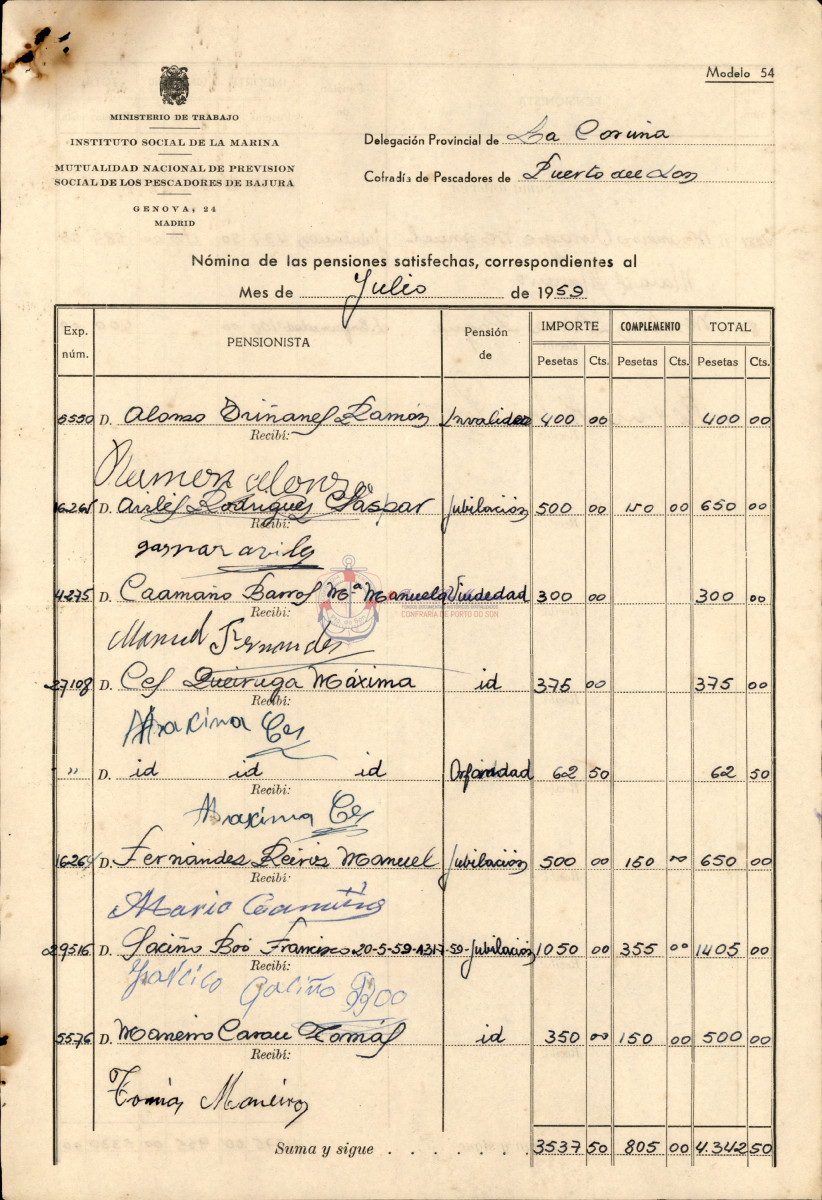 Modelo 54
MINISTERIO DE TRABAJO
INSTITUTO SOCIAL DE LA MARINA
MUTUALIDAD NACIONAL DE PREVISION
SOCIAL DE LOS PESCADORES DE BAJURA
GENOVA, 24
MADRID
Delegación Provincial de La Coruña
Cofradía de Pescadores de Puerto del Son
Nómina de las pensiones satisfechas, correspondientes al
Mes de Julio de 1959
Exp. núm. PENSIONISTA Pensión de IMPORTE COMPLEMENTO TOTAL
Pesetas Cts. Pesetas Cts. Pesetas Cts.
5550 D. Alonso Briñanes Ramón Invalidez 400 00 400 00
Recibí:
Ramon alonso
16265 D. Avilés Rodrigues Gaspar Jubilación 500 00 150 00 650 00
Recibí:
gaspar aviles
4275 D. Caamaño Barros Mª Manuela Viudedad 300 00 300 00
Recibí:
FONDOS DOCUMENTAIS HISTÓRICOS DIXITALIZADOS
CONFRARÍA DE PORTO DO SON
Manuel Fernandes
27108 D. Ces Queiruga Máxima id 375 00 375 00
Recibí:
Maxima Ces
" D. id id id Orfandad 62 50 62 50
Recibí:
Maxima Ces
D. Fernándes Reiros Manuel Jubilación 500 00 150 00 650 00
Recibí:
Mario Caamaño
29516 D. Boó Francisco 20-5-59-1317-59- Jubilación 1050 00 355 00 1405 00
Recibí:
Boo
5576 D. Maneiro Tomás id 350 00 150 00 500 00
Recibí:
Tomás Maneiro
Suma y sigue . . . . . . . 3537 50 805 00 4.342 50